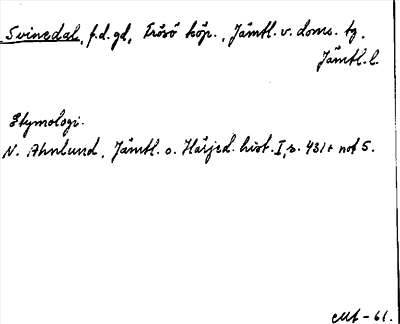 Svinedal, f.d. gd, Frösö köp., Jämtl. v. doms. tg.
Jämtl. l.
Etymologi.
N. Ahnlund, Jämtl. o. Härjed. hist. I, s. 431 + not 5.
-61.